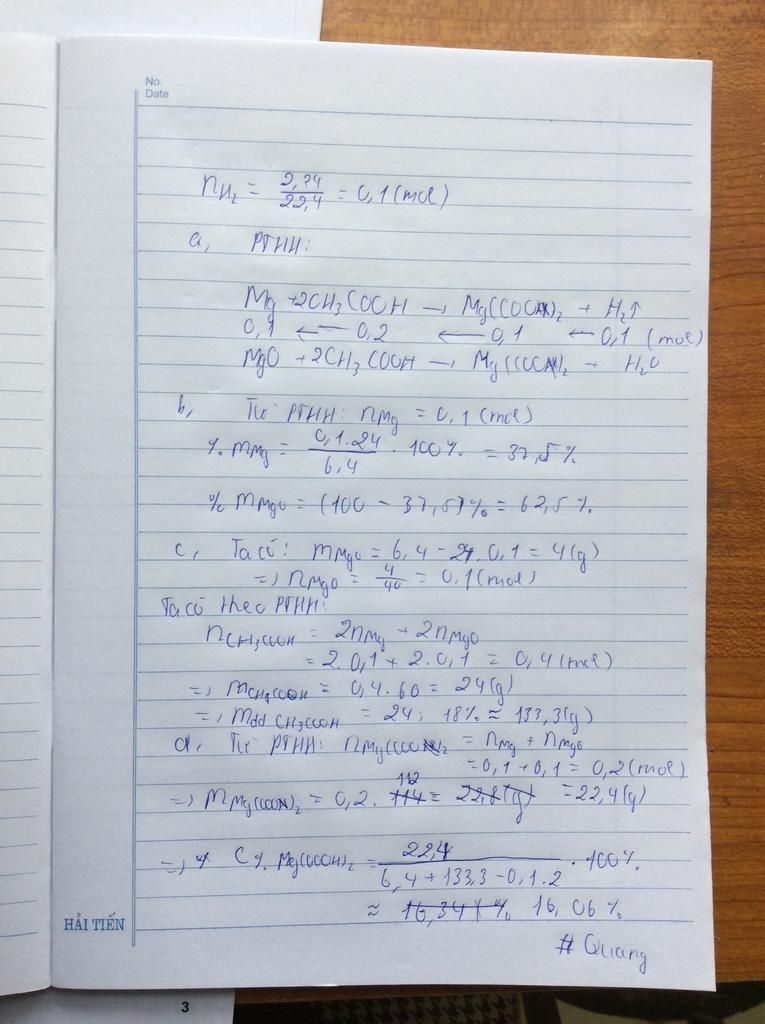 No.
Date
nH₂ = 2,24/22,4 = 0,1 (mol)
a, PTHH:
Mg + 2CH₃COOH → Mg(COO)₂ + H₂↑
0,1 ← 0,2 ← 0,1 ← 0,1 (mol)
MgO + 2CH₃COOH → Mg(COO)₂ + H₂O
b, Từ PTHH: nMg = 0,1 (mol)
% mMg = 0,1.24/6,4 . 100% = 37,5%
% mMgO = (100 - 37,5)% = 62,5%
c, Ta có: mMgO = 6,4 - 24.0,1 = 4(g)
=> nMgO = 4/40 = 0,1(mol)
Ta có theo PTHH:
nCH₃COOH = 2nMg + 2nMgO
= 2.0,1 + 2.0,1 = 0,4 (mol)
=> mCH₃COOH = 0,4.60 = 24(g)
=> mdd CH₃COOH = 24 : 18% ≈ 133,3(g)
d, Từ PTHH: nMg(COO)₂ = nMg + nMgO
= 0,1 + 0,1 = 0,2 (mol)
=> mMg(COO)₂ = 0,2 . 114 112 = 22,8(g) = 22,4(g)
=> C% Mg(COOH)₂ = 22,4/6,4 + 133,3 - 0,1.2 . 100%
≈ 16,34% 16,06%
# Quang
HẢI TIẾN
3